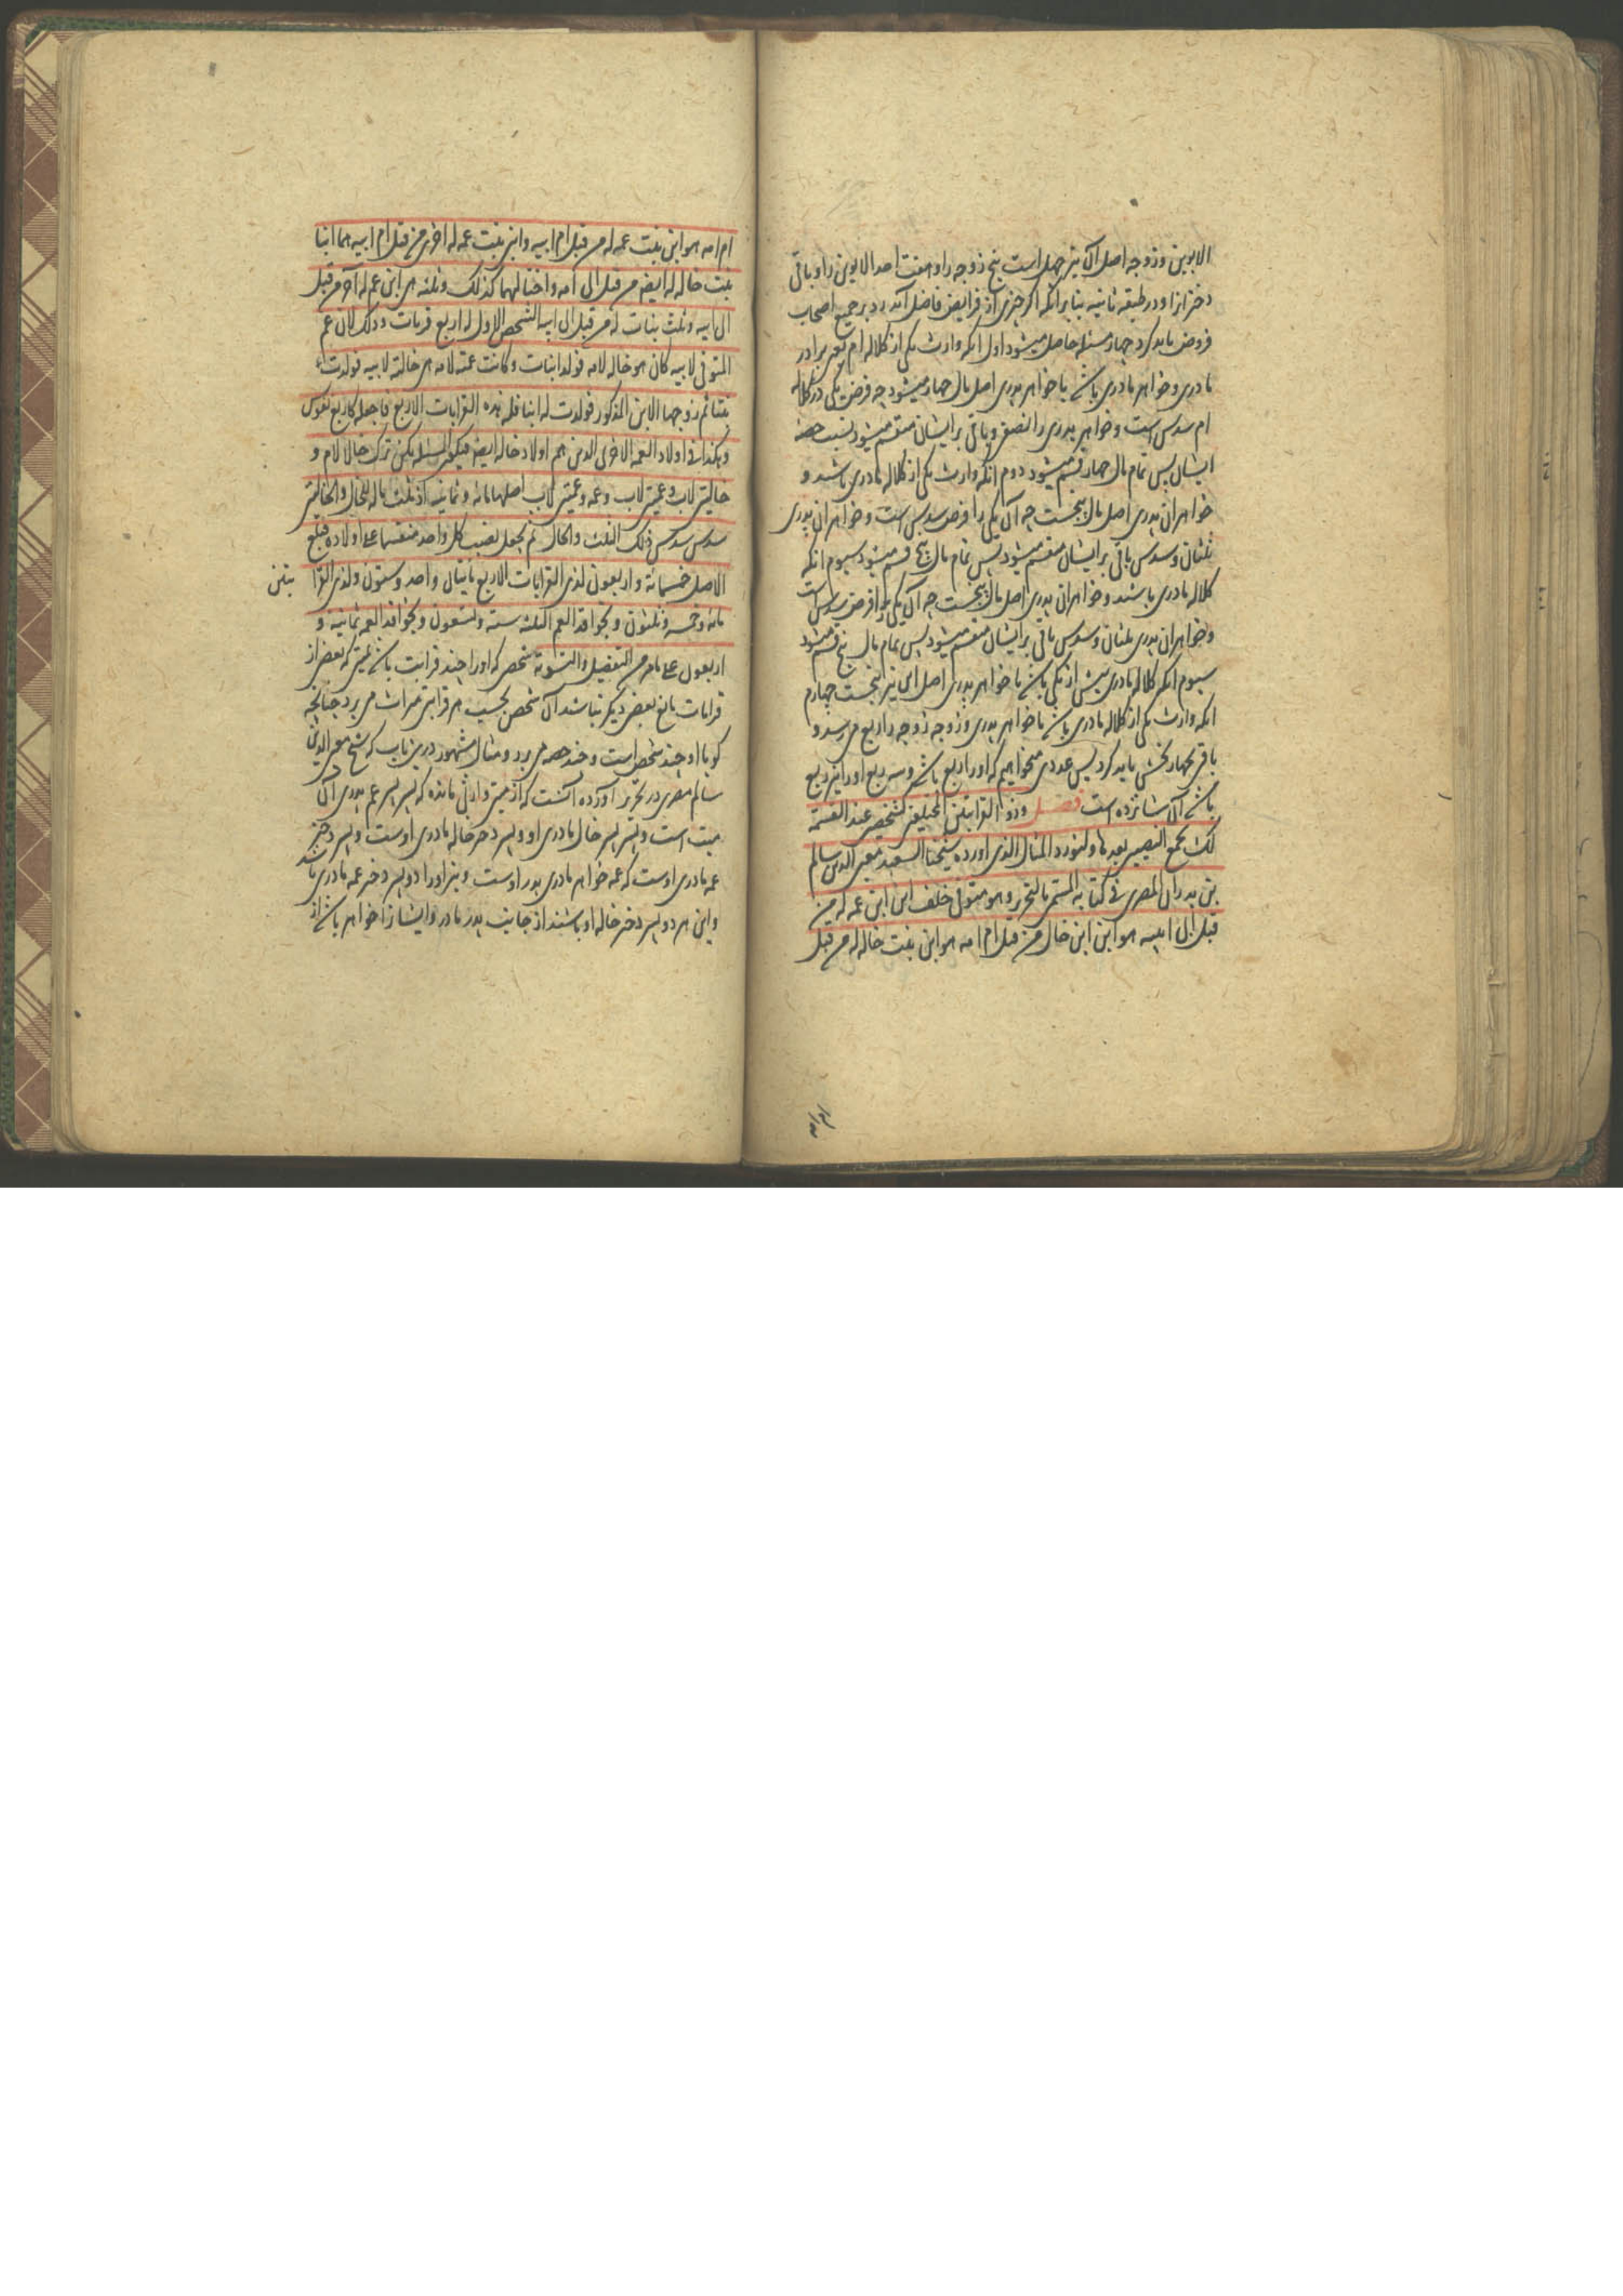 الابوین و زوجه اصل آن نیز چهل است پنج زوجه را و هفت احد الابوین را و باقی
دختر را و در طبقه ثانیه بنا بر انکه اگر چیزی از فرایض فاضل آید رد بر جمیع اصحاب
فروض باید کرد چهار مسئله حاصل میشود اول انکه وارث یکی از کلاله ام یعنی برادر
مادری و خواهر مادری باشد با خواهر پدری اصل مال چهار میشود چه فرض یکی در کلاله
ام سدس است و خواهر پدری را نصف و باقی بر ایشان منقسم میشود بنسبت حصه
ایشان پس تمام مال چهار قسم میشود دوم انکه وارث یکی از کلاله مادری باشد و
خواهران پدری اصل مال پنجست چه آن یکی را فرض سدس است و خواهران پدری
ثلثان و سدس باقی بر ایشان منقسم میشود پس تمام مال پنج قسم میشود سیوم انکه
کلاله مادری باشند و خواهران پدری اصل مال پنجست چه آن یکی را فرض سدس است
و خواهران پدری ثلثان و سدس باقی بر ایشان منقسم میشود پس تمام مال پنج قسم میشود
سیوم انکه کلاله مادری بیش از یکی باشد با خواهر پدری اصل این نیز پنجست چهارم
انکه وارث یکی از کلاله مادری باشد با خواهر پدری و زوجه زوجه را ربع می رسد و
باقی بچهار بخش باید کرد پس عددی میخواهیم که او را ربع باشد و سه ربع او را نیز ربع
باشد آن شانزده است فصل وذو القرابتین المختلفتین کشخص عند القسمة
لک یجمع النصیبین بعدها ولنورد المثال الذی اورده شیخنا السعید معین الدین سالم
بن بدران المصری فی کتابه المسمی بالتحریر و هو متوفی خلف ابن ابن عم له من
قبل اب ابیه هو ابن ابن خال من قبل ام امه هو ابن بنت خالة له من قبل
ام امه هو ابن بنت عمه له من قبل ام ابیه وابنی بنت عمه له اخری من قبل ام ابیه هما ابنا
بنت خاله له ایضا من قبل اب امه واختا لهما کذلک وثلثه هی ابن عم له آخر من قبل
اب ابیه وثلث بنات له من قبل اب ابیه الشخص الاول له اربع قربات وذلک لان عم
المتوفی لابیه کان هو خاله لامه فولد ابنا وکانت عمته لامه هی خالته لابیه فولدت
بنتا ثم زوجها الابن المذکور فولدت له ابنا فله هذه القرابات الاربع فاجعله کاربع نفوس
وهکذا فی اولاد العمه الاخری الذین هم اولاد خاله ایضا فیکون المسئله کمن ترک خالا لام و
خالتین لاب وعمین لاب وعمه وعمتین لاب اصلها مائه وثمانیه اذ ثلث ماله للخال والخالتین
سدس سدس ذلک الثلث والخال ثم یجعل نصیب کل واحد منقسما علی اولاده فبلغ
الاصل خمسمائة واربعون لذی القرابات الاربع مائتان واحد وستون ولذی القرا بتین
مائة وخمسه وثلثون ولاخوات العم الثلثه سته وتسعون ولاخوات العمه ثمانیه و
اربعون علی ما مر من التفضیل والتسویة شخصی که او را چند قرابت باشد بمیتی که بعضی از
قرابات مانع بعضی دیگر نباشد آن شخص بحسب هر قرابتی میراث می برد چنانچه
گویا او چند شخص است و چند حصه می برد و مثال مشهور درین باب که شیخ معین الدین
سالم مصری در تحریر آورده آنست که از میتی وارثی مانده که پسر پسر عم پدری آن
میت است و پسر پسر خال مادری او و پسر دختر خاله مادری اوست و پسر دختر
عمه مادری اوست که عمه خواهر مادری پدر اوست و نیز او را دو پسر دختر عمه مادری باشد
و این هر دو پسر دختر خاله او باشند از جانب پدر مادر و ایشان را خواهر باشد از